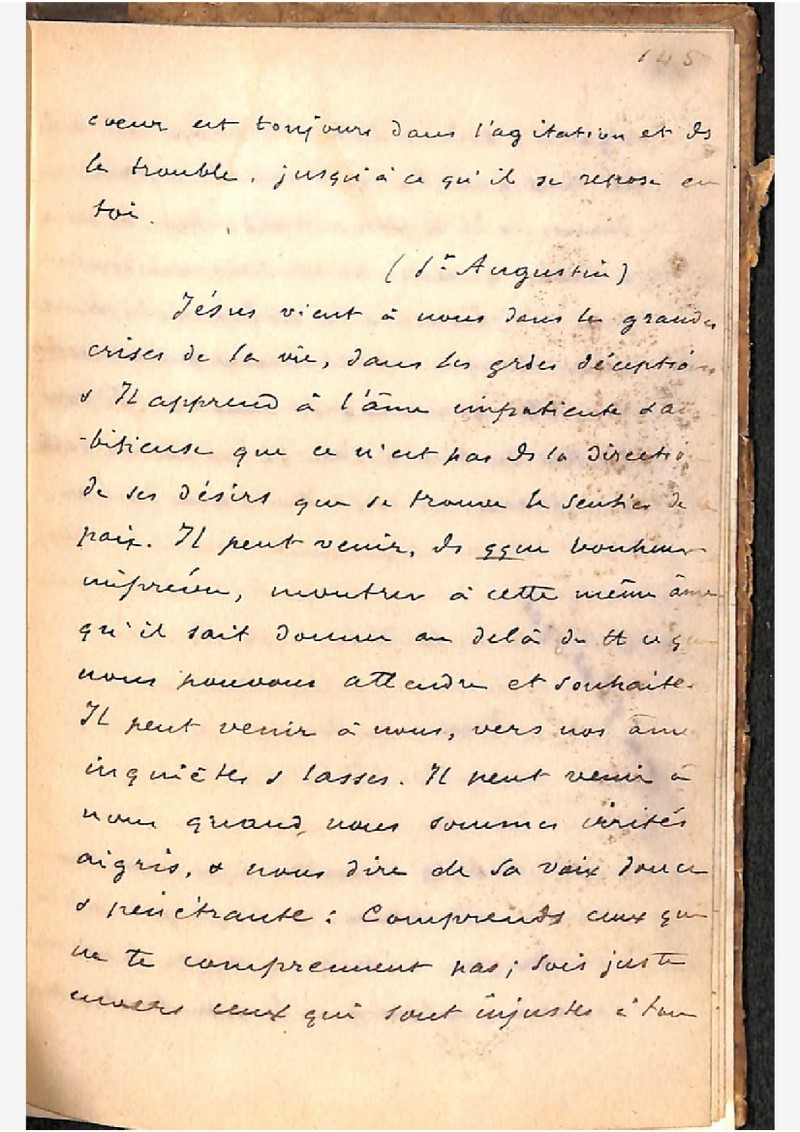 145
coeur est toujours dans l'agitation et ds
le trouble, jusqu'à ce qu'il se repose en
toi.
(St Augustin)
Jésus vient à nous dans les grandes
crises de la vie, dans les grdes déceptions
& Il apprend à l'âme impatiente & am
-bitieuse que ce n'est pas ds la direction
de ses désirs que se trouve le sentier de
paix. Il peut venir, ds qque bonheur
imprévu, montrer à cette même âme
qu'il sait donner au delà de tt ce que
nous pouvons attendre et souhaiter.
Il peut venir à nous, vers nos âmes
inquiètes & lasses. Il peut venir à
nous quand nous sommes irrités
aigris, & nous dire de sa voix douce
& pénétrante : Comprends ceux qui
ne te comprennent pas ; sois juste
envers ceux qui sont injustes à ton